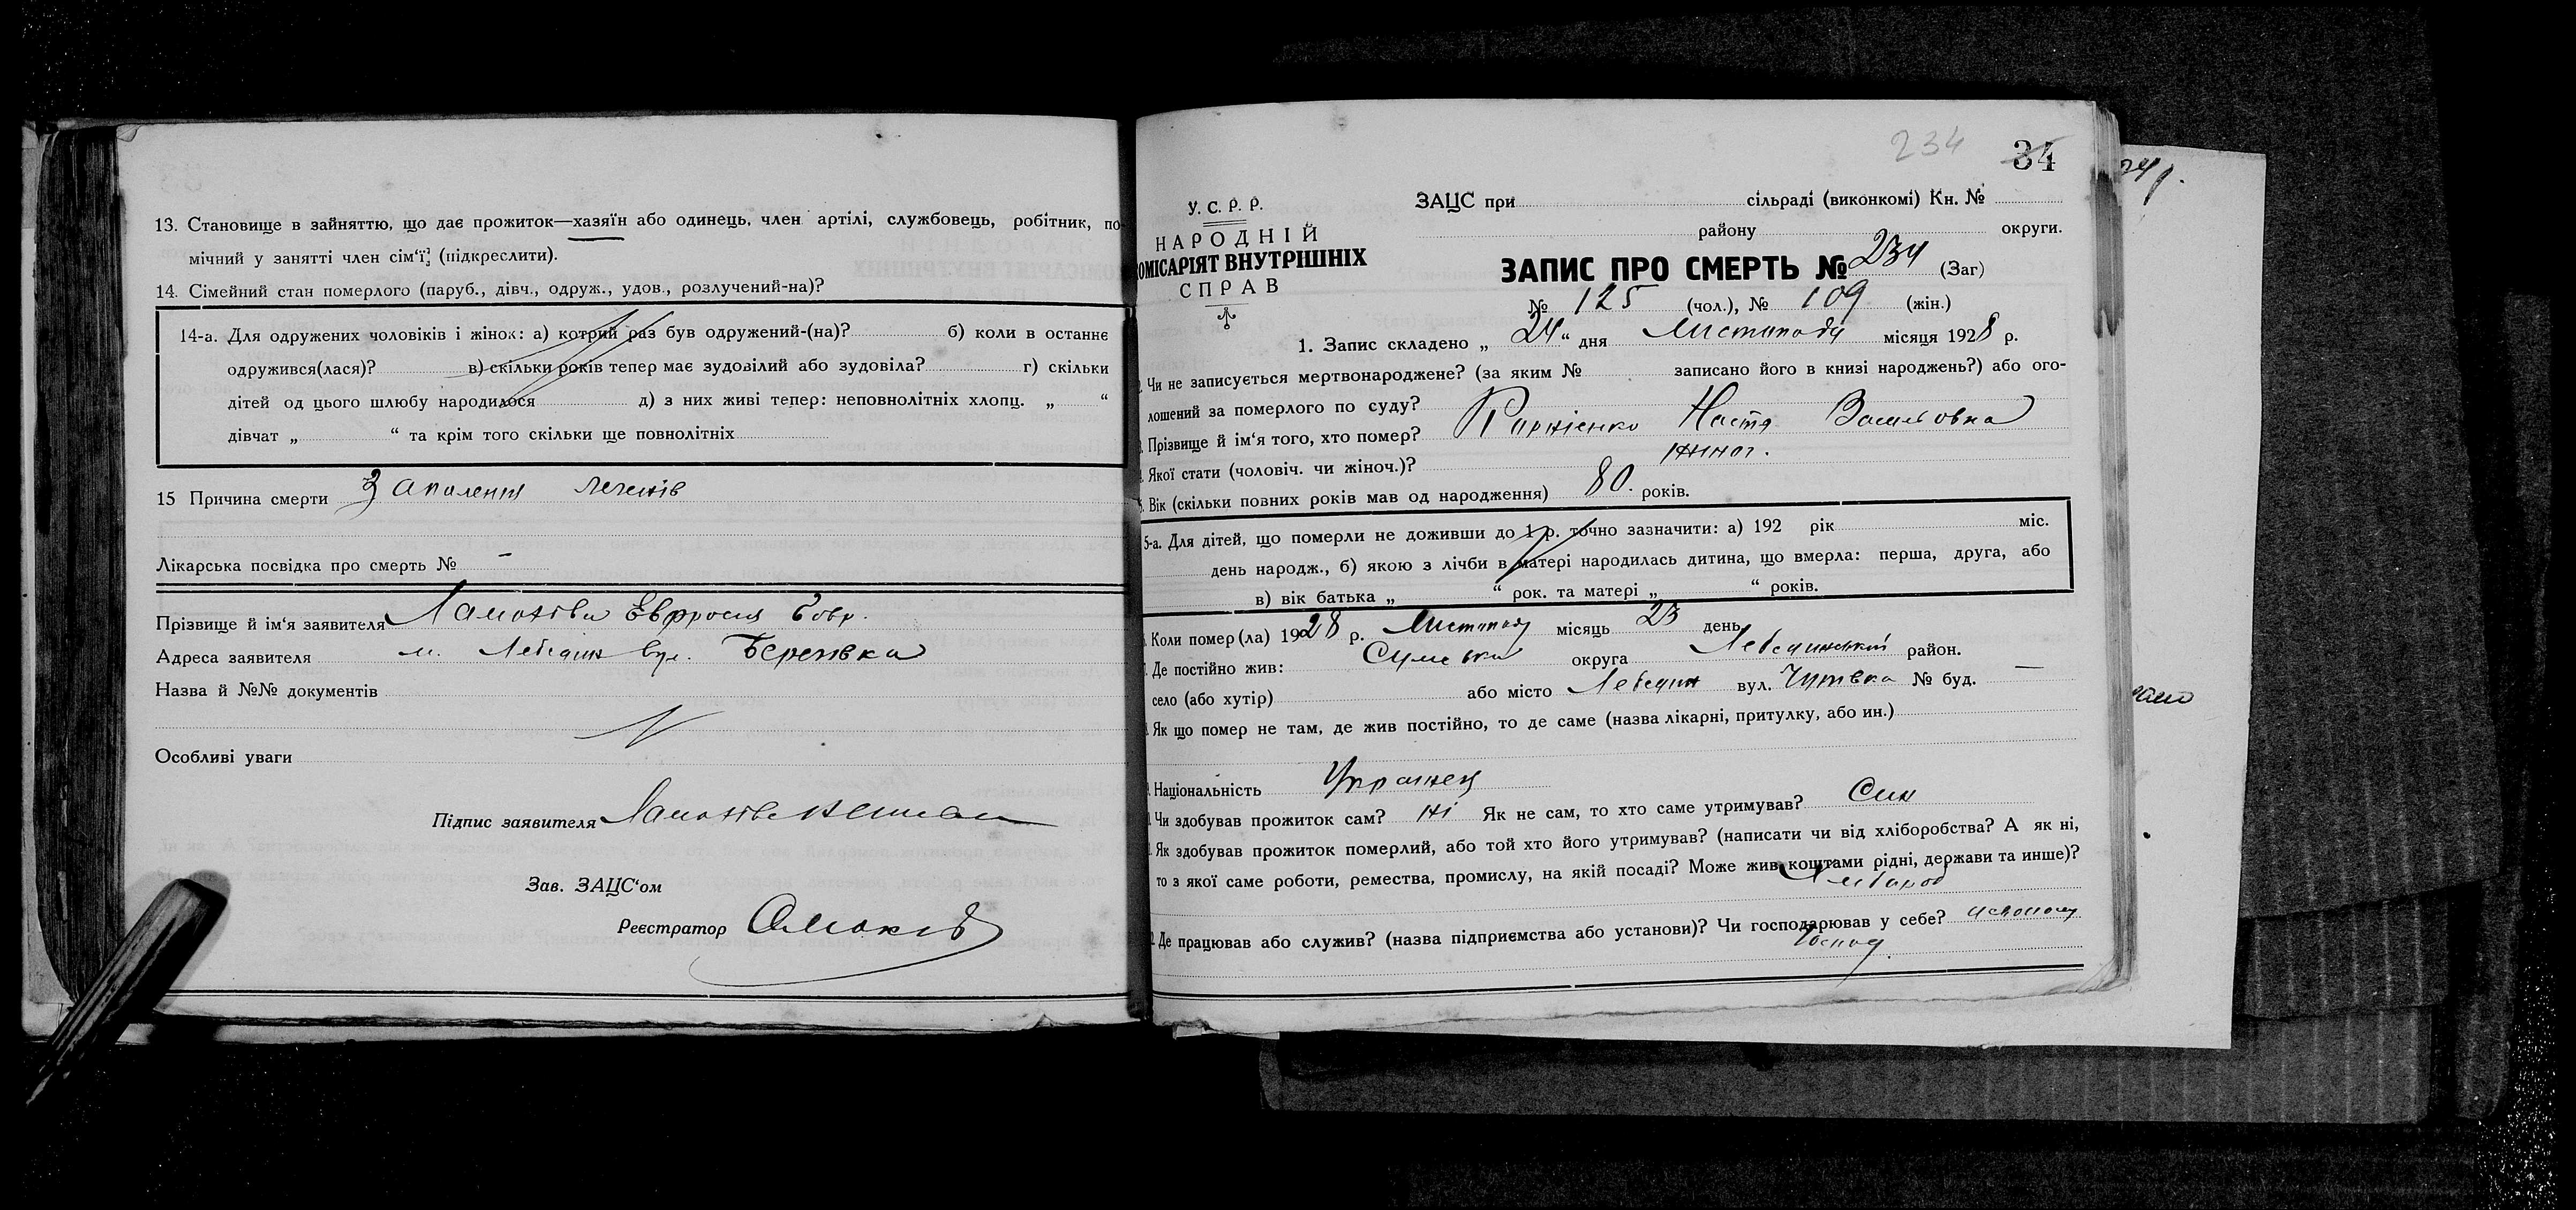 13. Становище в зайняттю, що дає прожиток—хазяїн або одинець, член артілі, службовець, робітник, по-
мічний у занятті член сім‘ї] (підкреслити).
14. Сімейний стан померлого (паруб., дівч., одруж., удов., розлучений-на)?
14-а. Для одружених чоловіків і жінок: а) котрий раз був одружений-(на)? б) коли в останнє
одружився(лася)? в) скільки років тепер має зудовілий або зудовіла? г) скільки
дітей од цього шлюбу народилося д) з них живі тепер: неповнолітніх хлопц. „ “
дівчат „ “ та крім того скільки ще повнолітніх
15 Причина смерти Запаления легенів
Лікарська посвідка про смерть № —
Прізвище й ім‘я заявителя Евфросия
Адреса заявителя м. Лебедин вул.
Назва й №№ документів
Особливі уваги
Підпис заявителя
Зав. ЗАЦС‘ом
Реєстратор
234
34
У. С. Р. Р.
НАРОДНІЙ
КОМІСАРІЯТ ВНУТРІШНІХ
СПРАВ
ЗАЦС при сільраді (виконкомі) Кн. №
району округи.
ЗАПИС ПРО СМЕРТЬ № 234 (Заг)
№ 125 (чол.), № 109 (жін.)
1. Запис складено „ 24 “ дня Листопаду місяця 1928 р.
Чи не записується мертвонароджене? (за яким № записано його в книзі народжень?) або ого-
лошений за померлого по суду?
Прізвище й ім‘я того, хто помер? Настя Васильовна
Якої стати (чоловіч. чи жіноч.)? жіноч.
Вік (скільки повних років мав од народження) 80. років.
5-а. Для дітей, що померли не доживши до 1 р. точно зазначити: а) 192 рік міс.
день народж., б) якою з лічби в матері народилась дитина, що вмерла: перша, друга, або
в) вік батька „ “ рок. та матері „ “ років.
Коли помер(ла) 1928 р. Листопад місяць 23 день
Де постійно жив: Сумська округа Лебединський район.
село (або хутір) або місто Лебедин вул. № буд. —
Як що помер не там, де жив постійно, то де саме (назва лікарні, притулку, або ин.)
Національність Украинец
Чи здобував прожиток сам? Ні Як не сам, то хто саме утримував? Син
Як здобував прожиток померлий, або той хто його утримував? (написати чи від хліборобства? А як ні,
то з якої саме роботи, ремества, промислу, на якій посаді? Може жив коштами рідні, держави та инше)?
Хлібороб
Де працював або служив? (назва підприємства або установи)? Чи господарював у себе? у своему
господ.